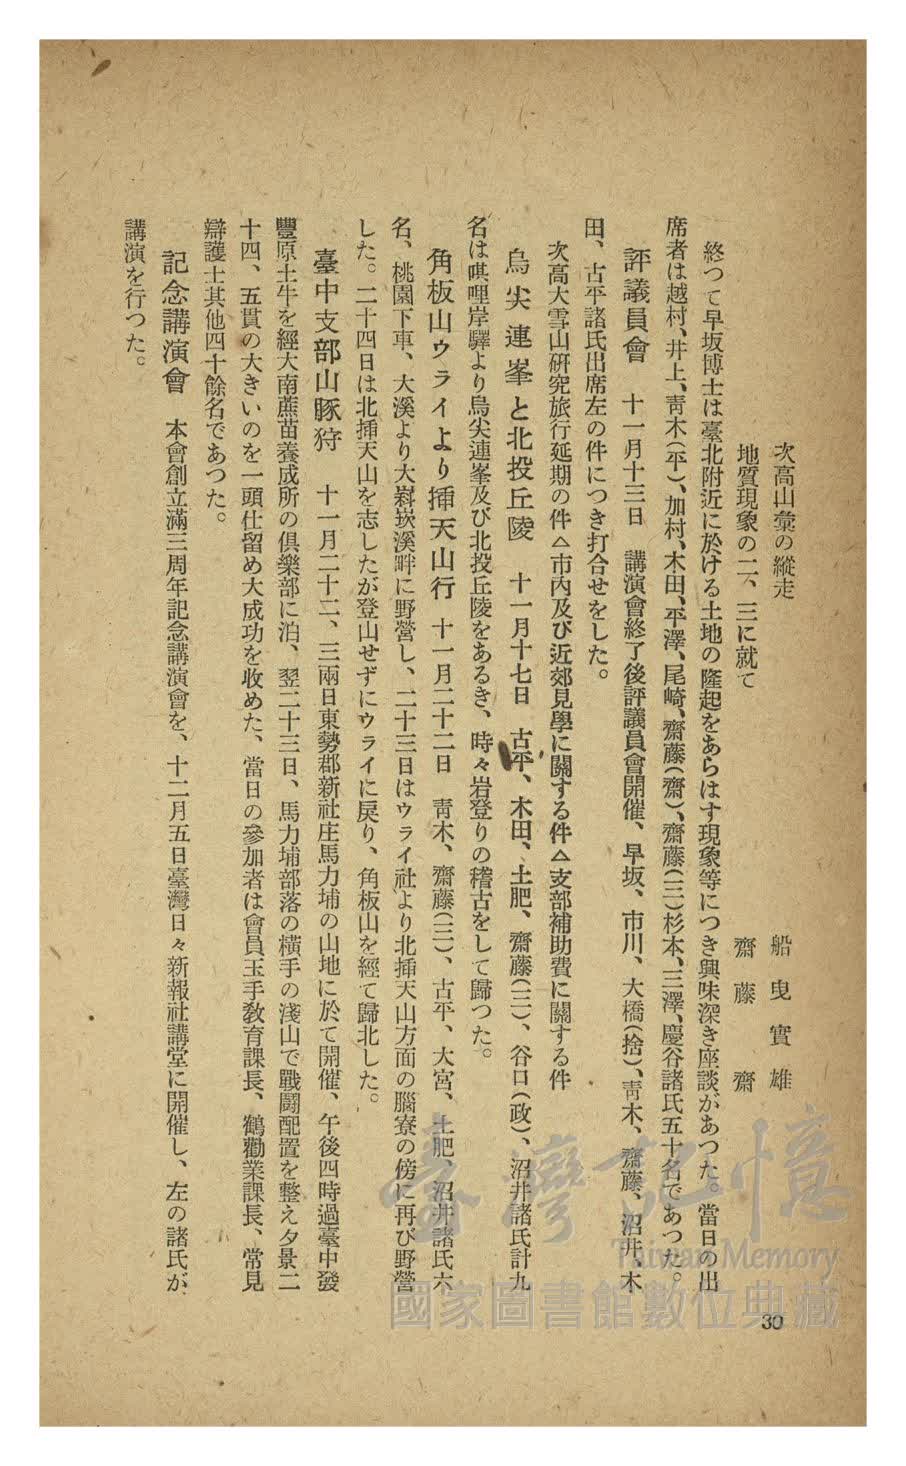 次高山彙の縱走　船曳實雄
地質現象の二、三に就て　齋藤齋
終つて早坂博士は臺北附近に於ける土地の隆起をあらはす現象等につき興味深き座談があつた。當日の出
席者は越村、井上、靑木（平）、加村、木田、平澤、尾崎、齋藤（齋）、齋藤（三）杉本、三澤、慶谷諸氏五十名であつた。
評議員會　十一月十三日　講演會終了後評議員會開催、早坂、市川、大橋（捨）、靑木、齋藤、沼井、木
田、古平諸氏出席左の件につき打合せをした。
次高大雪山硏究旅行延期の件△市內及び近郊見學に關する件△支部補助費に關する件
烏尖連峯と北投丘陵　十一月十七日　古平、木田、土肥、齋藤（三）、谷口（政）、沼井諸氏計九
名は唭哩岸驛より烏尖連峯及び北投丘陵をあるき、時々岩登りの稽古をして歸つた。
角板山ウライより揷天山行　十一月二十二日　靑木、齋藤（三）、古平、大宮、土肥、沼井諸氏六
名、桃園下車、大溪より大嵙崁溪畔に野營し、二十三日はウライ社より北揷天山方面の腦寮の傍に再び野營
した。二十四日は北揷天山を志したが登山せずにウライに戾り、角板山を經て歸北した。
臺中支部山豚狩　十一月二十二、三兩日東勢郡新社庄馬力埔の山地に於て開催、午後四時過臺中發
豐原土牛を經大南蔗苗養成所の俱樂部に泊、翌二十三日、馬力埔部落の橫手の淺山で戰鬪配置を整え夕景二
十四、五貫の大きいのを一頭仕留め大成功を收めた、當日の參加者は會員玉手敎育課長、鶴勸業課長、常見
辯護士其他四十餘名であつた。
記念講演會　本會創立滿三周年記念講演會を、十二月五日臺灣日々新報社講堂に開催し、左の諸氏が
講演を行つた。
30
臺灣記憶
Taiwan Memory
國家圖書館數位典藏